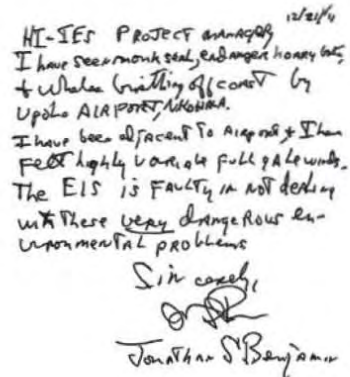 12/21/11
HI-IES PROJECT MANAGER
I have seen monk seal, endanger hoary bat,
+ Whales birthing off coast by
Upolu AIRPORT, N. KOHALA.
I have been adjacent To Airport & I have
Felt highly variable full gale winds.
The EIS is FAULTY in not dealing
with These very dangerous en-
vironmental problems
Sincerely,
Jonathan S Benjamin